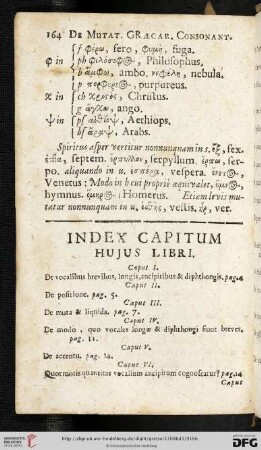 164 DE MUTAT. GRÆCAR. CONSONANT.
f φέρω, fero, φυγή, fuga.
φ in ph φιλόσοφ@, Philosophus,
b ἄμφω, ambo, νεφέλη, nebula.
p πορφυρ@, purpureus.
χ in ch χριστὸς, Christus.
g ἄγχω, ango.
ψ in ps αἰθίοψ, Aethiops,
bs ἄραψ, Arabs.
Spiritus asper vertitur nonnunquam in s. ἓξ, sex.
ἑπτὰ, septem. ἕρπυλλον, serpyllum. ἕρπω, ser-
po. aliquando in u, ἑσπέρα, vespera.
Venetus; Modo in h cui propriè æquivalet,
hymnus. Homerus. Etiam levis mu-
tatur nonnunquam in u, vestis, ver.
INDEX CAPITUM
HUJUS LIBRI.
Caput I.
De vocalibus brevibus, longis, ancipitibus & diphthongis. pag. 4
Caput II.
De positione. pag. 5.
Caput III.
De muta & liquida. pag. 7.
Caput IV.
De modo, quo vocales longæ & diphthongi fiunt breves,
pag. 11.
Caput V.
De accentu. pag. 14.
Caput VI.
Quot modis quantitas vocalium ancipitum cognoscatur? pag.
Caput
http://digi.ub.uni-heidelberg.de/diglit/gretser1708bd1/0166
© Universitätsbibliothek Heidelberg
gefördert durch die
DFG